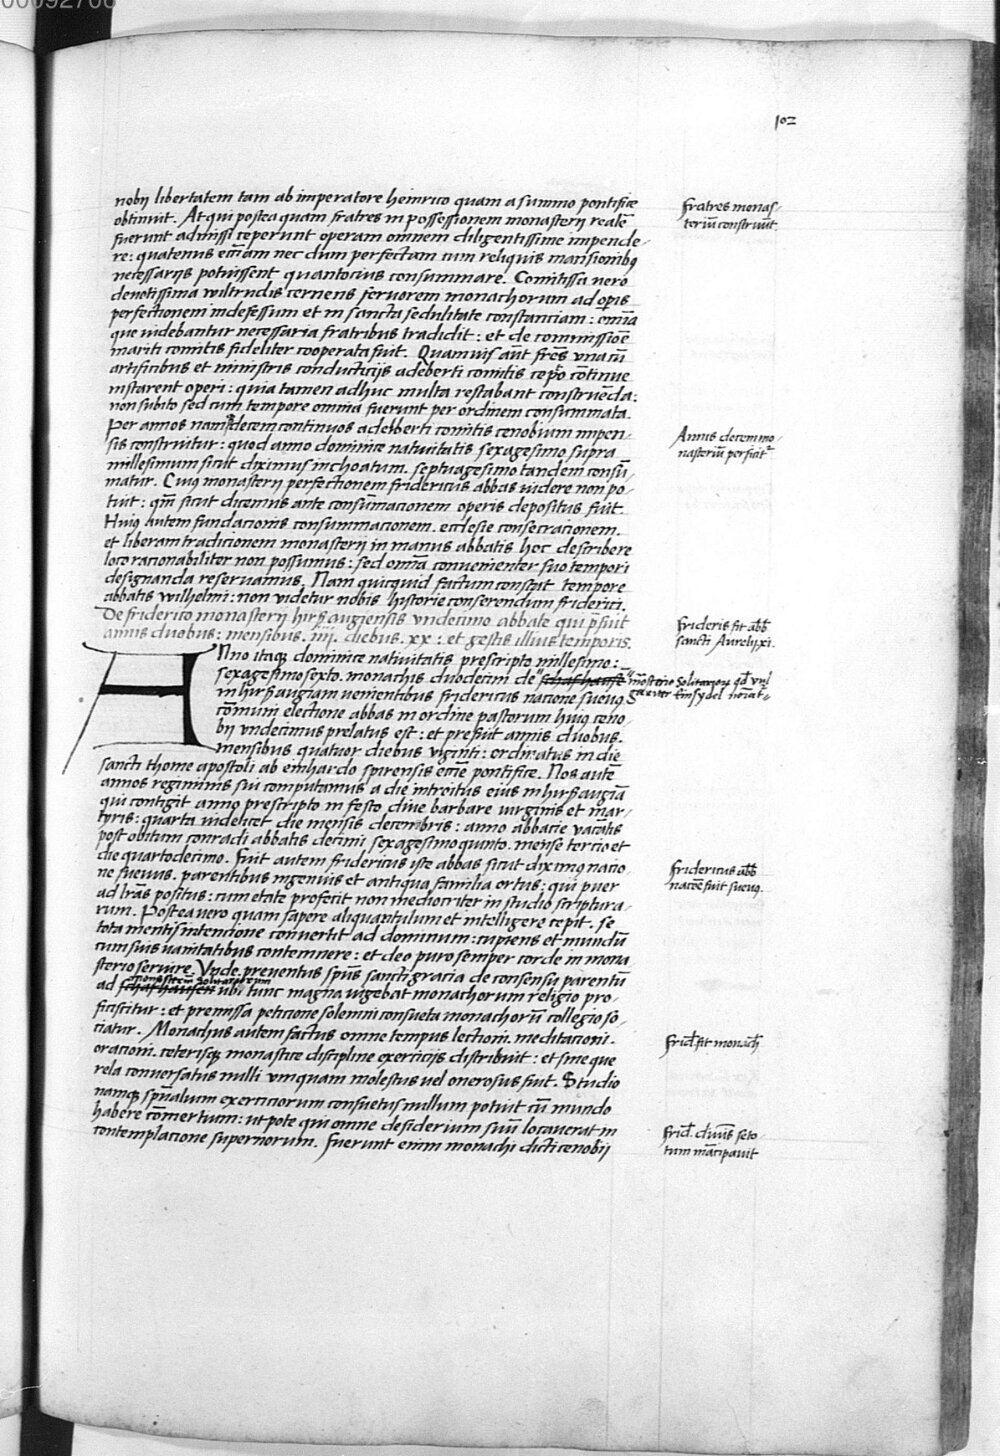 102
nobij libertatem tam ab imperatore heinrico quam a summo pontifice
obtinuit. At qui postea quam fratres in possessionem monasterij realē
fuerunt admissi ceperunt operam omnem diligentissime impende-
re: quatenus eccīam nec dum perfectam cum reliquis mansionibꝰ
necessarijs potuissent quantocius consummare. Comitissa vero
deuotissima wiltrudis cernens feruorem monachorum ad opis
perfectionem indefessum et in sancta sedulitate constanciam: omīa
que videbantur necessaria fratribus tradidit: et de commissiōe
mariti comitis fideliter cooperata fuit. Quamuis aūt frēs vna cū
artificibus et ministris conducticijs adelberti comitis cepto cōtinue
instarent operi: quia tamen adhuc multa restabant construēda:
non subito sed cum tempore omnia fuerunt per ordinem consummata.
Per annos namqꝫ decem continuos adelberti comitis cenobium impen-
sis construitur: quod anno dominice natiuitatis sexagesimo supra
millesimum sicut diximus inchoatum. septuagesimo tandem consū-
matur. Cuiꝰ monasterij perfectionem fridericus abbas videre non po-
tuit: qm̄ sicut dicemus ante consūmacionem operis depositus fuit.
Huiꝰ autem fundacionis consummacionem. ecclesie consecracionem.
et liberam tradicionem monasterij in manus abbatis hoc describere
loco racionabiliter non possumus: sed omīa conuenienter suo tempori
designanda reseruamus. Nam quicquid factum constat tempore
abbatis wilhelmi: non videtur nobis historie conserendum friderici.
De friderico monasterij hirsaugiensis vndecimo abbate qui p̄fuit
annis duobus: mensibus. iiij. diebus. xx: et gestis illius temporis.
ANno itaqꝫ dominice natiuitatis prescripto millesimo:
sexagesimo sexto. monachis duodecim de schafhausē
in hirsaugiam venientibus fridericus nacione sueuꝰ
cōmuni electione abbas in ordine pastorum huiꝰ ceno-
bij vndecimus prelatus est: et prefuit annis duobus.
mensibus quatuor diebus viginti: ordinatus in die
sancti thome apostoli ab einhardo spirensis eccīe pontifice. Nos autē
annos regiminis sui computamus a die introitus eius in hirsaugiā
qui contigit anno prescripto in festo diue barbare virginis et mar-
tyris: quarta videlicet die mensis decembris: anno abbacie vacātis
post obitum conradi abbatis decimi, sexagesimo quinto. mense tercio et
die quartodecimo. Fuit autem fridericus iste abbas sicut diximꝰ nacio-
ne sueuus. parentibus ingenuis et antiqua familia ortus: qui puer
ad lrās positus: cum etate profecit non mediocriter in studio scriptura-
rum. Postea vero quam sapere aliquantulum et intelligere cepit. se
tota mentis intencione conuertit ad dominum: cupiens et mundū
cum suis vanitatibus contemnere: et deo puro semper corde in mona
sterio seruire. Vnde preuentus spūs sancti gracia de consensu parentū
ad schafhausen vbi tunc magna vigebat monachorum religio pro-
ficiscitur: et premissa peticione solemni consueta monachorū collegio so-
ciatur. Monachus autem factus omne tempus lectioni. meditacioni.
oracioni. ceterisqꝫ monastice discipline exercicijs distribuit: et sine que
rela conuersatus nulli vmquam molestus vel onerosus fuit. Studio
namqꝫ spūalium exerciciorum consuetus nullum potuit cū mundo
habere cōmercium: ut pote qui omne desiderium suū locauerat in
contemplacione supernorum. Fuerunt enim monachi dicti cenobij
fratres monas-
teriū construūt.
Annis decem mo-
nasteriū perficitʳ
Frideris fit abb̄
sancti Aurelij. xi.
mōsterio Solitarioꝝ qđ vul
gariter Einsydel noīat
Fridericus abb̄
nacōe fuit sueuꝰ.
monasteriū Solitariorum
Frid̄. fit monach̄
Frid̄. diuīs se to-
tum mācipauit